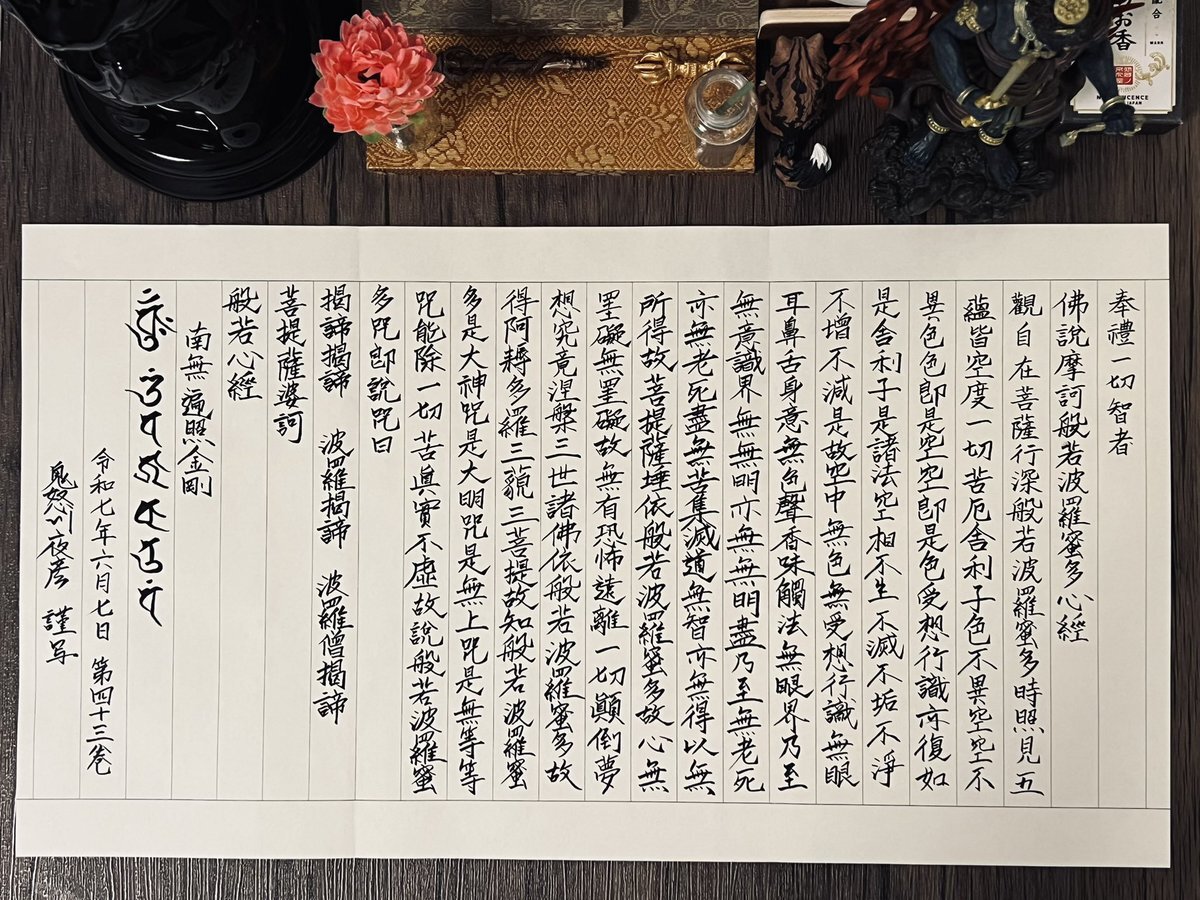 奉禮一切智者
佛說摩訶般若波羅蜜多心經
觀自在菩薩行深般若波羅蜜多時照見五
蘊皆空度一切苦厄舍利子色不異空空不
異色色即是空空即是色受想行識亦復如
是舍利子是諸法空相不生不滅不垢不淨
不增不減是故空中無色無受想行識無眼
耳鼻舌身意無色聲香味觸法無眼界乃至
無意識界無無明亦無無明盡乃至無老死
亦無老死盡無苦集滅道無智亦無得以無
所得故菩提薩埵依般若波羅蜜多故心無
罣礙無罣礙故無有恐怖遠離一切顛倒夢
想究竟涅槃三世諸佛依般若波羅蜜多故
得阿耨多羅三藐三菩提故知般若波羅蜜
多是大神咒是大明咒是無上咒是無等等
咒能除一切苦眞實不虛故說般若波羅蜜
多咒即說咒曰
揭諦揭諦 波羅揭諦 波羅僧揭諦
菩提薩婆訶
般若心經
南無遍照金剛
令和七年六月七日 第四十三巻
鬼怒川夜彦 謹写
お香
配合